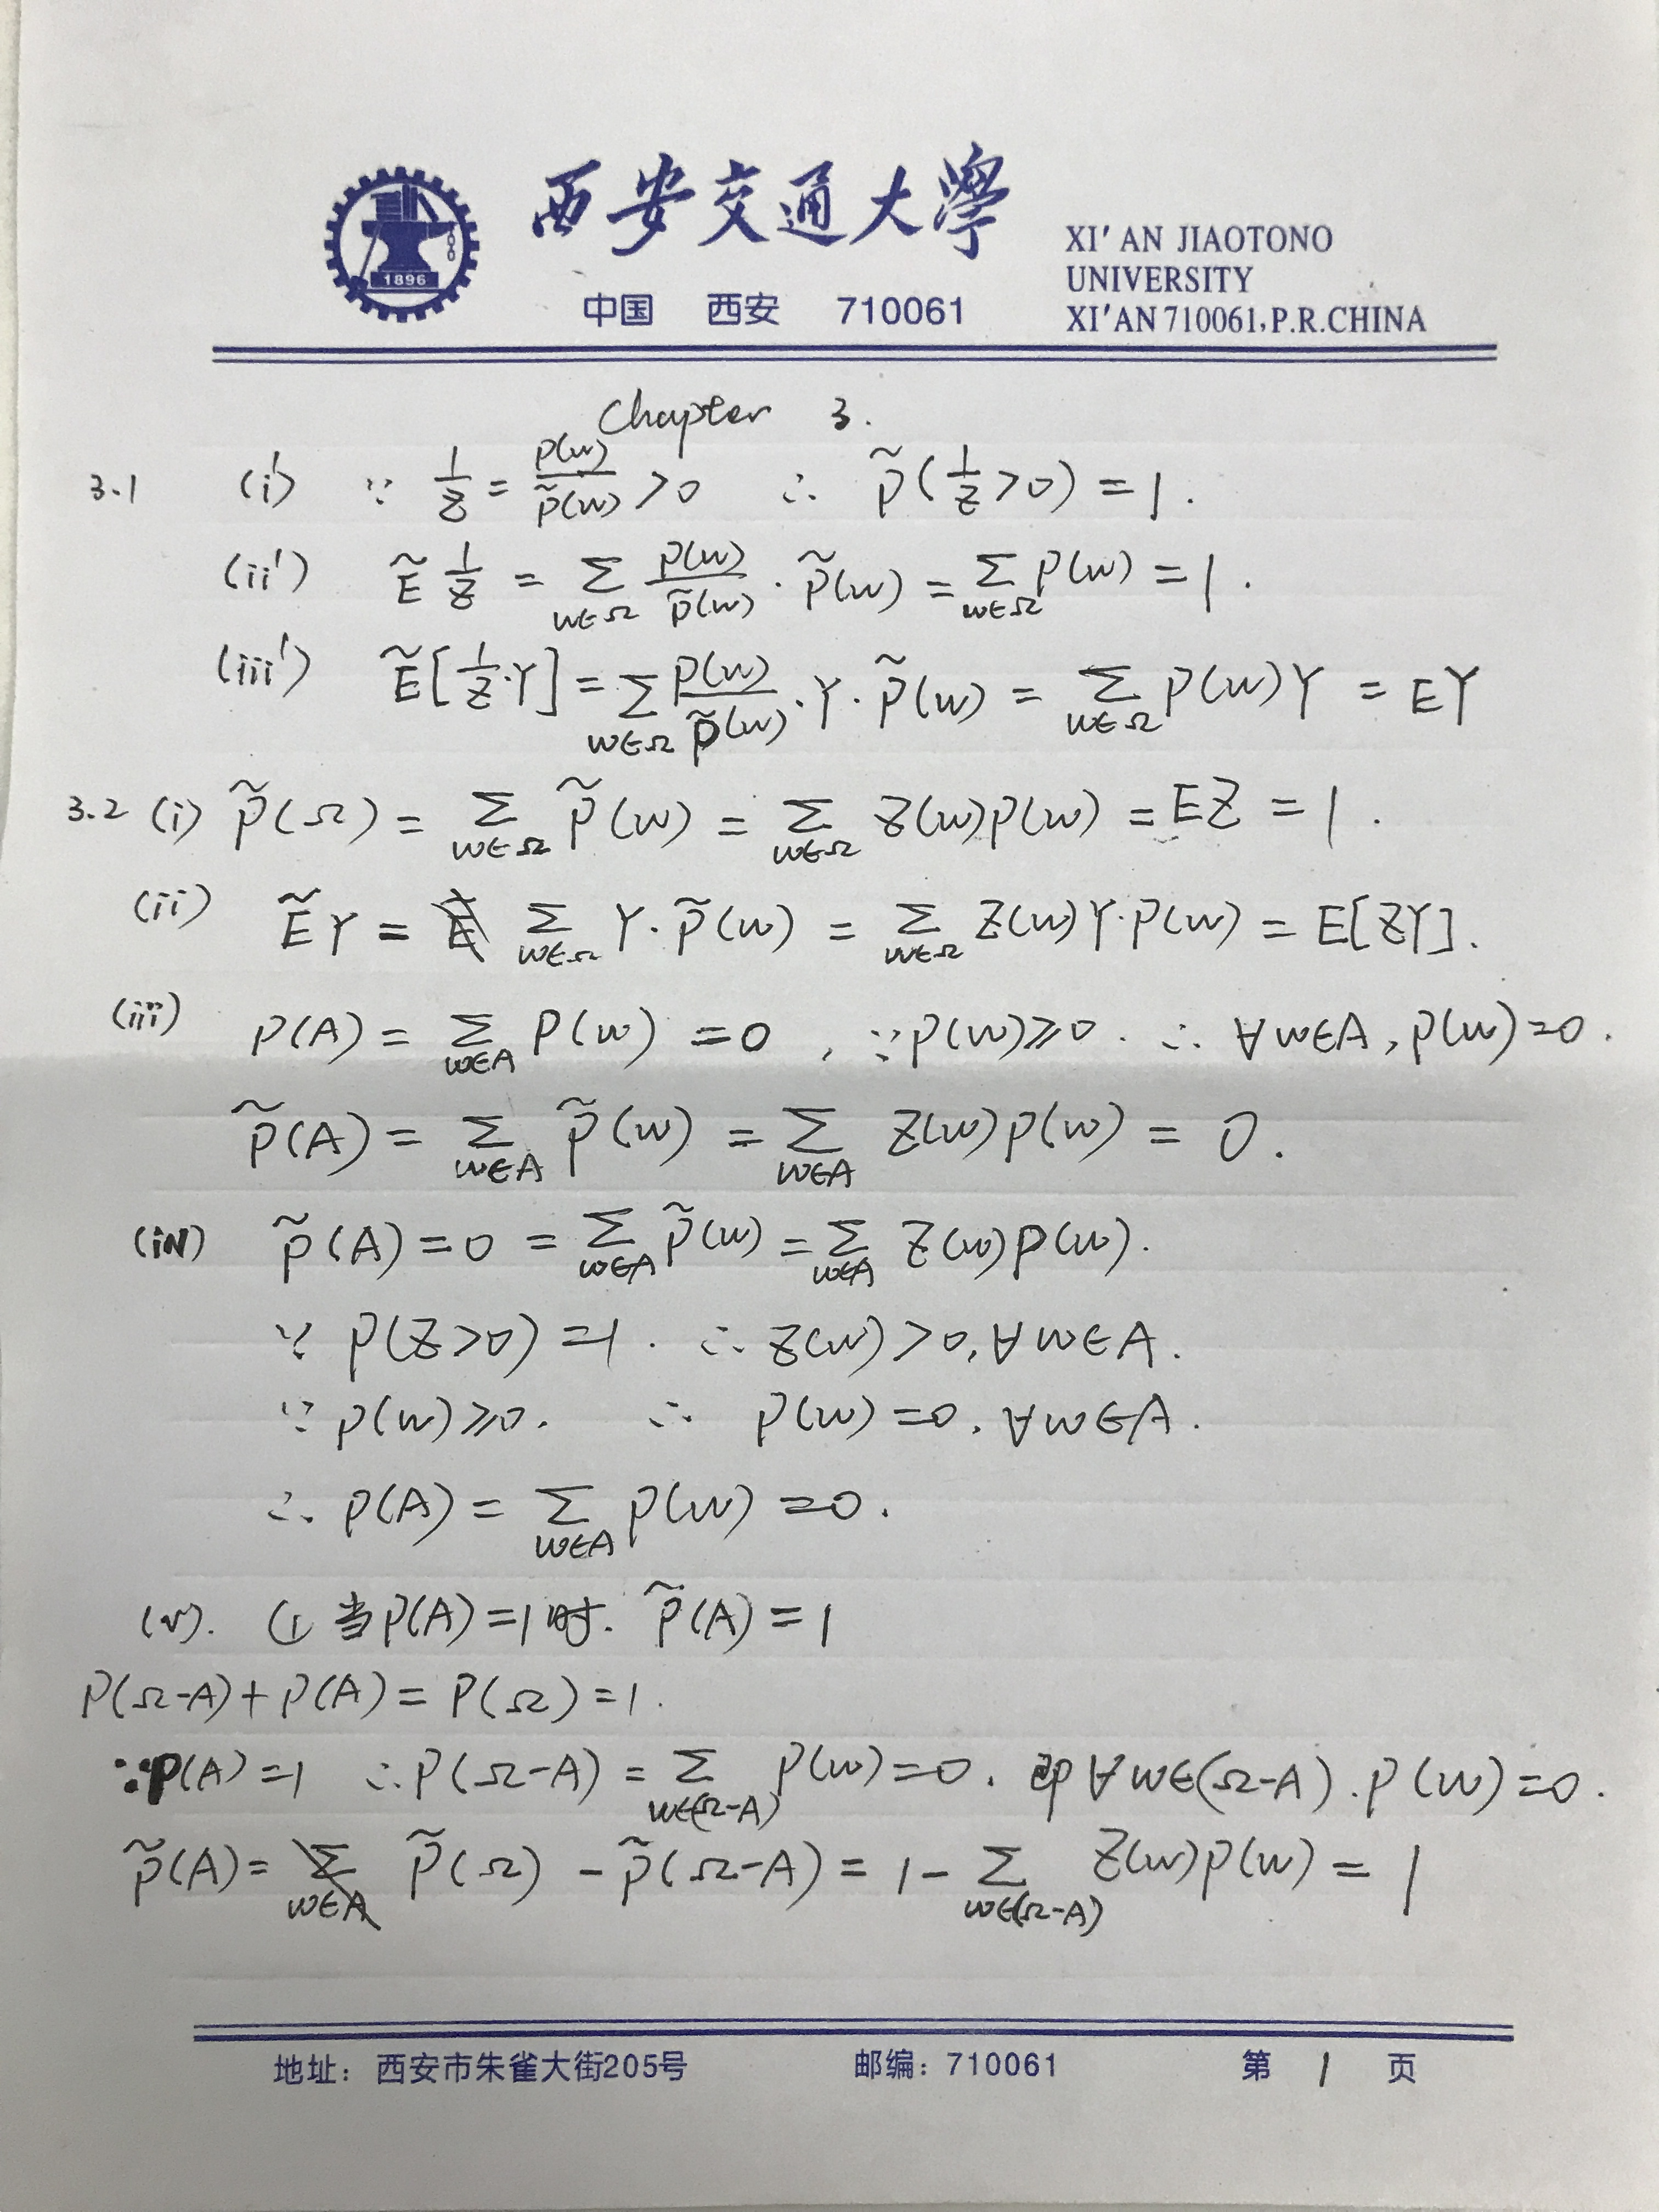 西安交通大學
XI'AN JIAOTONO
UNIVERSITY
XI'AN 710061, P.R.CHINA
中国 西安 710061
1896
Chapter 3.
3.1 (i') ∵ 1/Z = P(w)/P̃(w) > 0 ∴ P̃(1/Z > 0) = 1.
(ii') Ẽ 1/Z = Σ_{w∈Ω} P(w)/P̃(w) · P̃(w) = Σ_{w∈Ω} P(w) = 1.
(iii') Ẽ[1/Z·Y] = Σ_{w∈Ω} P(w)/P̃(w) · Y · P̃(w) = Σ_{w∈Ω} P(w)Y = EY
3.2 (i) P̃(Ω) = Σ_{w∈Ω} P̃(w) = Σ_{w∈Ω} Z(w)P(w) = EZ = 1.
(ii) ẼY = Σ_{w∈Ω} Y·P̃(w) = Σ_{w∈Ω} Z(w)Y·P(w) = E[ZY].
(iii) P(A) = Σ_{w∈A} P(w) = 0, ∵P(w)≥0. ∴ ∀w∈A, P(w)=0.
P̃(A) = Σ_{w∈A} P̃(w) = Σ_{w∈A} Z(w)P(w) = 0.
(iv) P̃(A) = 0 = Σ_{w∈A} P̃(w) = Σ_{w∈A} Z(w)P(w).
∵ P(Z>0) = 1. ∴ Z(w) > 0, ∀w∈A.
∵ P(w)≥0. ∴ P(w) = 0, ∀w∈A.
∴ P(A) = Σ_{w∈A} P(w) = 0.
(v). ① 当P(A)=1时. P̃(A) = 1
P(Ω-A) + P(A) = P(Ω) = 1.
∵P(A)=1 ∴P(Ω-A) = Σ_{w∈(Ω-A)} P(w)=0. 即∀w∈(Ω-A). P(w)=0.
P̃(A) = P̃(Ω) - P̃(Ω-A) = 1 - Σ_{w∈(Ω-A)} Z(w)P(w) = 1
地址：西安市朱雀大街205号 邮编：710061 第 1 页